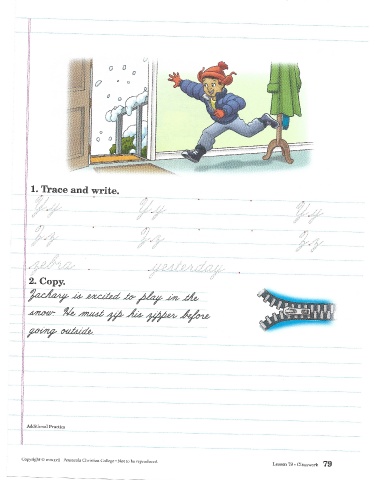 1. Trace and write.
Yy Yy Yy
Zz Zz Zz
zebra yesterday
2. Copy.
Zachary is excited to play in the
snow. He must zip his zipper before
going outside.
Additional Practice
Pensacola Christian College • Not to be reproduced.
Lesson 79 • Classwork 79